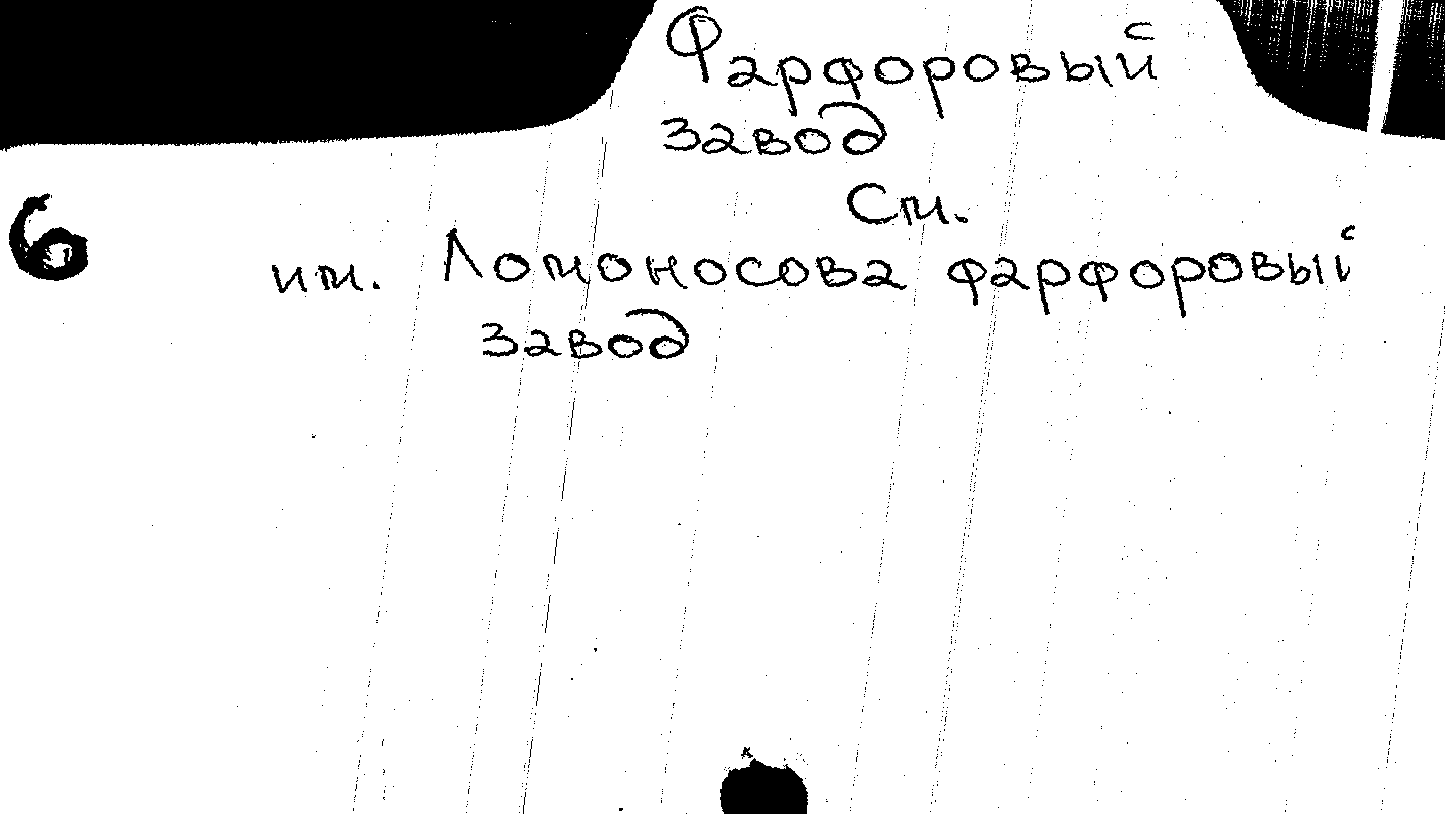 Фарфоровый
завод
См.
6
им. Ломоносова фарфоровый
завод